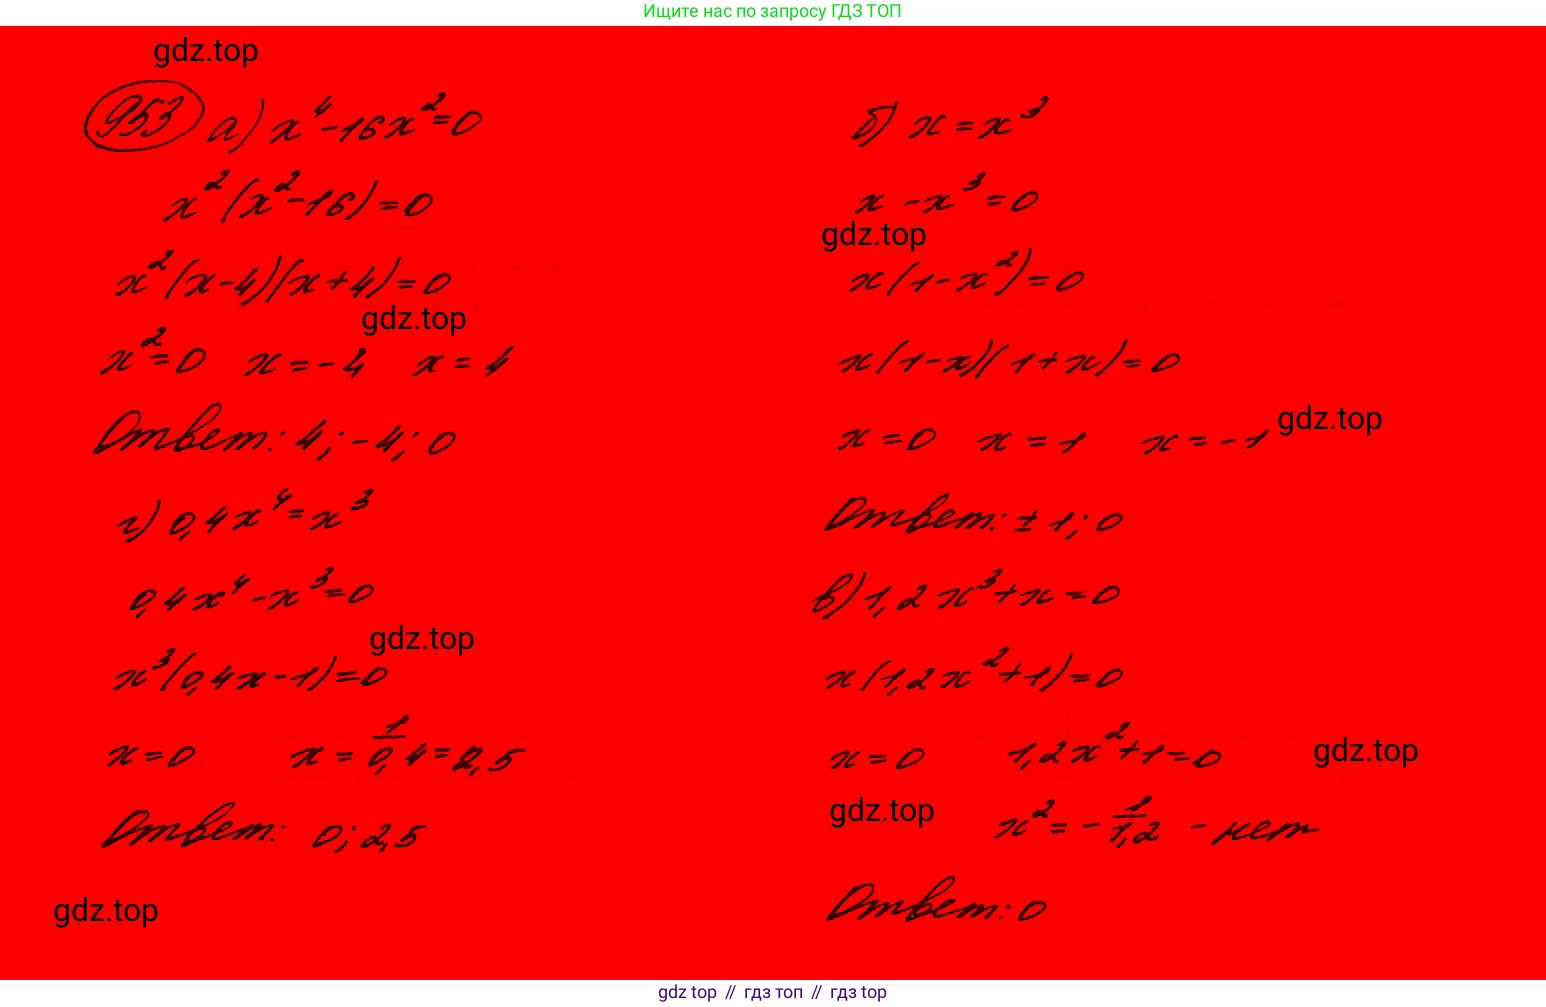 Ищите нас по запросу ГДЗ ТОП
gdz.top
953 а) x⁴-16x²=0
x²(x²-16)=0
x²(x-4)(x+4)=0
gdz.top
x²=0 x=-4 x=4
Ответ: 4; -4; 0
г) 0,4x⁴=x³
0,4x⁴-x³=0
gdz.top
x³(0,4x-1)=0
x=0 x=1/0,4=2,5
Ответ: 0; 2,5
gdz.top
б) x=x³
x-x³=0
gdz.top
x(1-x²)=0
x(1-x)(1+x)=0
gdz.top
x=0 x=1 x=-1
Ответ: ±1; 0
в) 1,2x³+x=0
x(1,2x²+1)=0
x=0 1,2x²+1=0
gdz.top
gdz.top
x²=-1/1,2 - нет
Ответ: 0
gdz top // гдз топ // гдз top